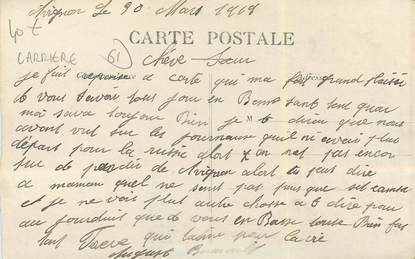 Avignon Le 30 Mars 1919
CARTE POSTALE
CARRIÈRE
Chère Sœur
je fait reponse a carte qui ma fait grand plaisir
de vous savoir tous jour en Bonne santé tent quar
moi sava toujour Bien je te direu que nous
avont vut sur les journeaux quil ni avait plus
depart pour la russie alort on net pas encor
sur de partir de Avignon alort tu peut dire
a maman quel ne soit pas
et je ne vois plus autre chosse a te dire pour
au jourduit que de vous en Brasse tousse Bien fort
ton Frere qui taime pour la vie
August